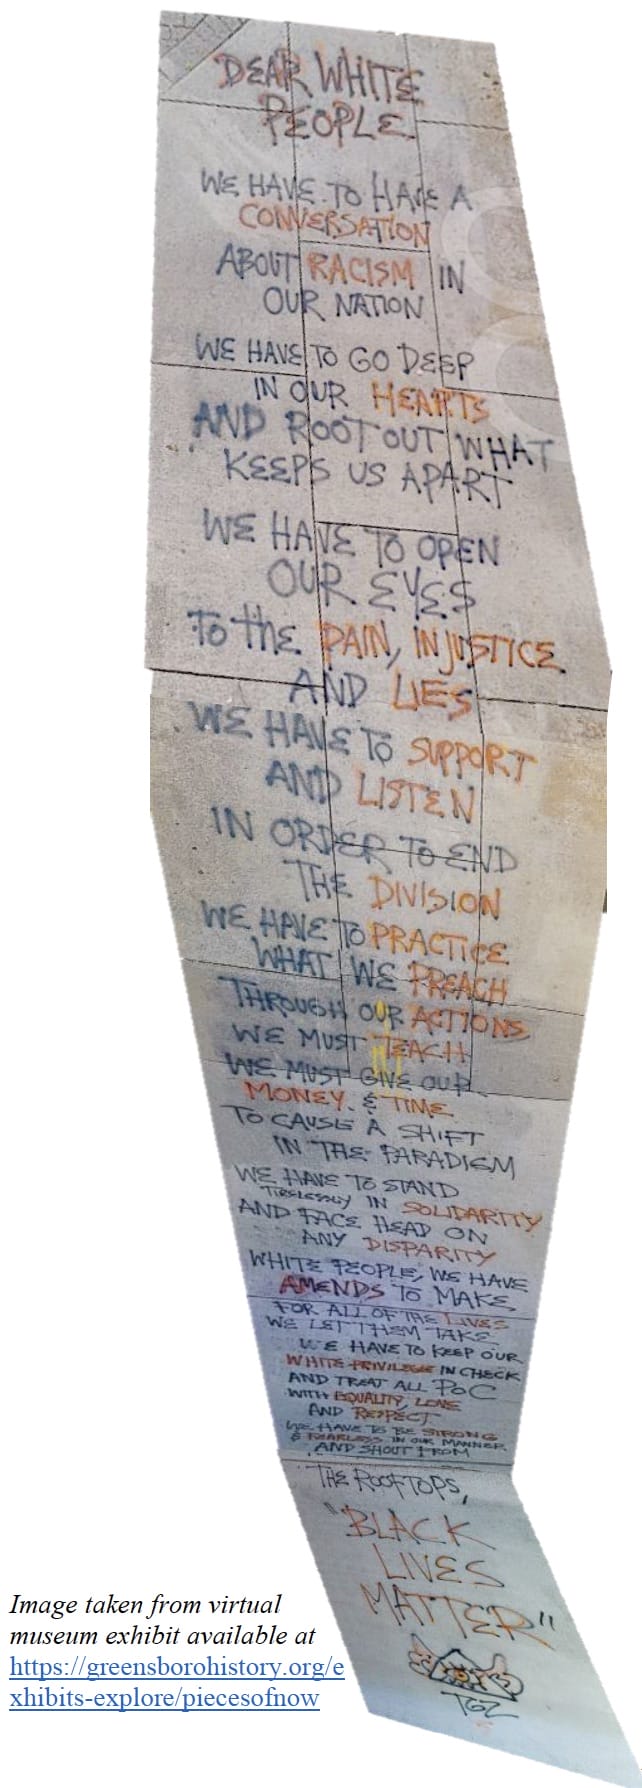 DEAR WHITE
PEOPLE
WE HAVE TO HAVE A
CONVERSATION
ABOUT RACISM IN
OUR NATION
WE HAVE TO GO DEEP
IN OUR HEARTS
AND ROOT OUT WHAT
KEEPS US APART
WE HAVE TO OPEN
OUR EYES
TO THE PAIN, INJUSTICE
AND LIES
WE HAVE TO SUPPORT
AND LISTEN
IN ORDER TO END
THE DIVISION
WE HAVE TO PRACTICE
WHAT WE PREACH
THROUGH OUR ACTIONS
WE MUST TEACH
WE MUST GIVE OUR
MONEY & TIME
TO CAUSE A SHIFT
IN THE PARADIGM
WE HAVE TO STAND
TIRELESSLY IN SOLIDARITY
AND FACE HEAD ON
ANY DISPARITY
WHITE PEOPLE, WE HAVE
AMENDS TO MAKE,
FOR ALL OF THE LIVES
WE LET THEM TAKE
WE HAVE TO KEEP OUR
WHITE PRIVILEGE IN CHECK
AND TREAT ALL POC
WITH EQUALITY, LOVE
AND RESPECT
WE HAVE TO BE STRONG
& FEARLESS IN OUR MANNER
AND SHOUT FROM
THE ROOFTOPS,
"BLACK
LIVES
MATTER"
TGZ
Image taken from virtual
museum exhibit available at
https://greensborohistory.org/e
xhibits-explore/piecesofnow